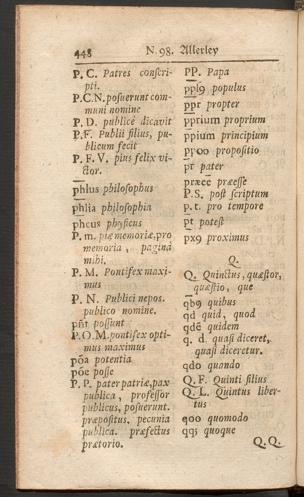 448
N. 98. Allerley
P. C. Patres conscri-
pti.
P.C.N. posuerunt com-
muni nomine
P. D. publicè dicavit
P.F. Publii filius, pu-
blicum fecit
P. F. V. pius felix vi-
ctor.
phlus philosophus
phlia philosophia
phcus physicus
P. m. piæ memoriæ, pro
memoria, paginâ
mihi.
P. M. Pontifex maxi-
mus
P. N. Publici nepos.
publico nomine.
pn̄t possunt
P.O.M. pontifex opti-
mus maximus
pōa potentia
pōe posse
P. P. pater patriæ, pax
publica, professor
publicus, posuerunt.
præpositus. pecunia
publica. præfectus
prætorio.
PP. Papa
ppl9 populus
ppt propter
pprium proprium
ppium principium
ppoo propositio
pr pater
præce præesse
P.S. post scriptum
p. t. pro tempore
pt potest
px9 proximus
Q.
Q. Quinctus, quæstor,
quæstio, que
qb9 quibus
qd quid, quod
qdē quidem
q. d. quasi diceret,
quasi diceretur.
qdo quando
Q. F. Quinti filius
Q. L. Quintus liber-
tus
qoo quomodo
qqȝ quoque
Q. Q.